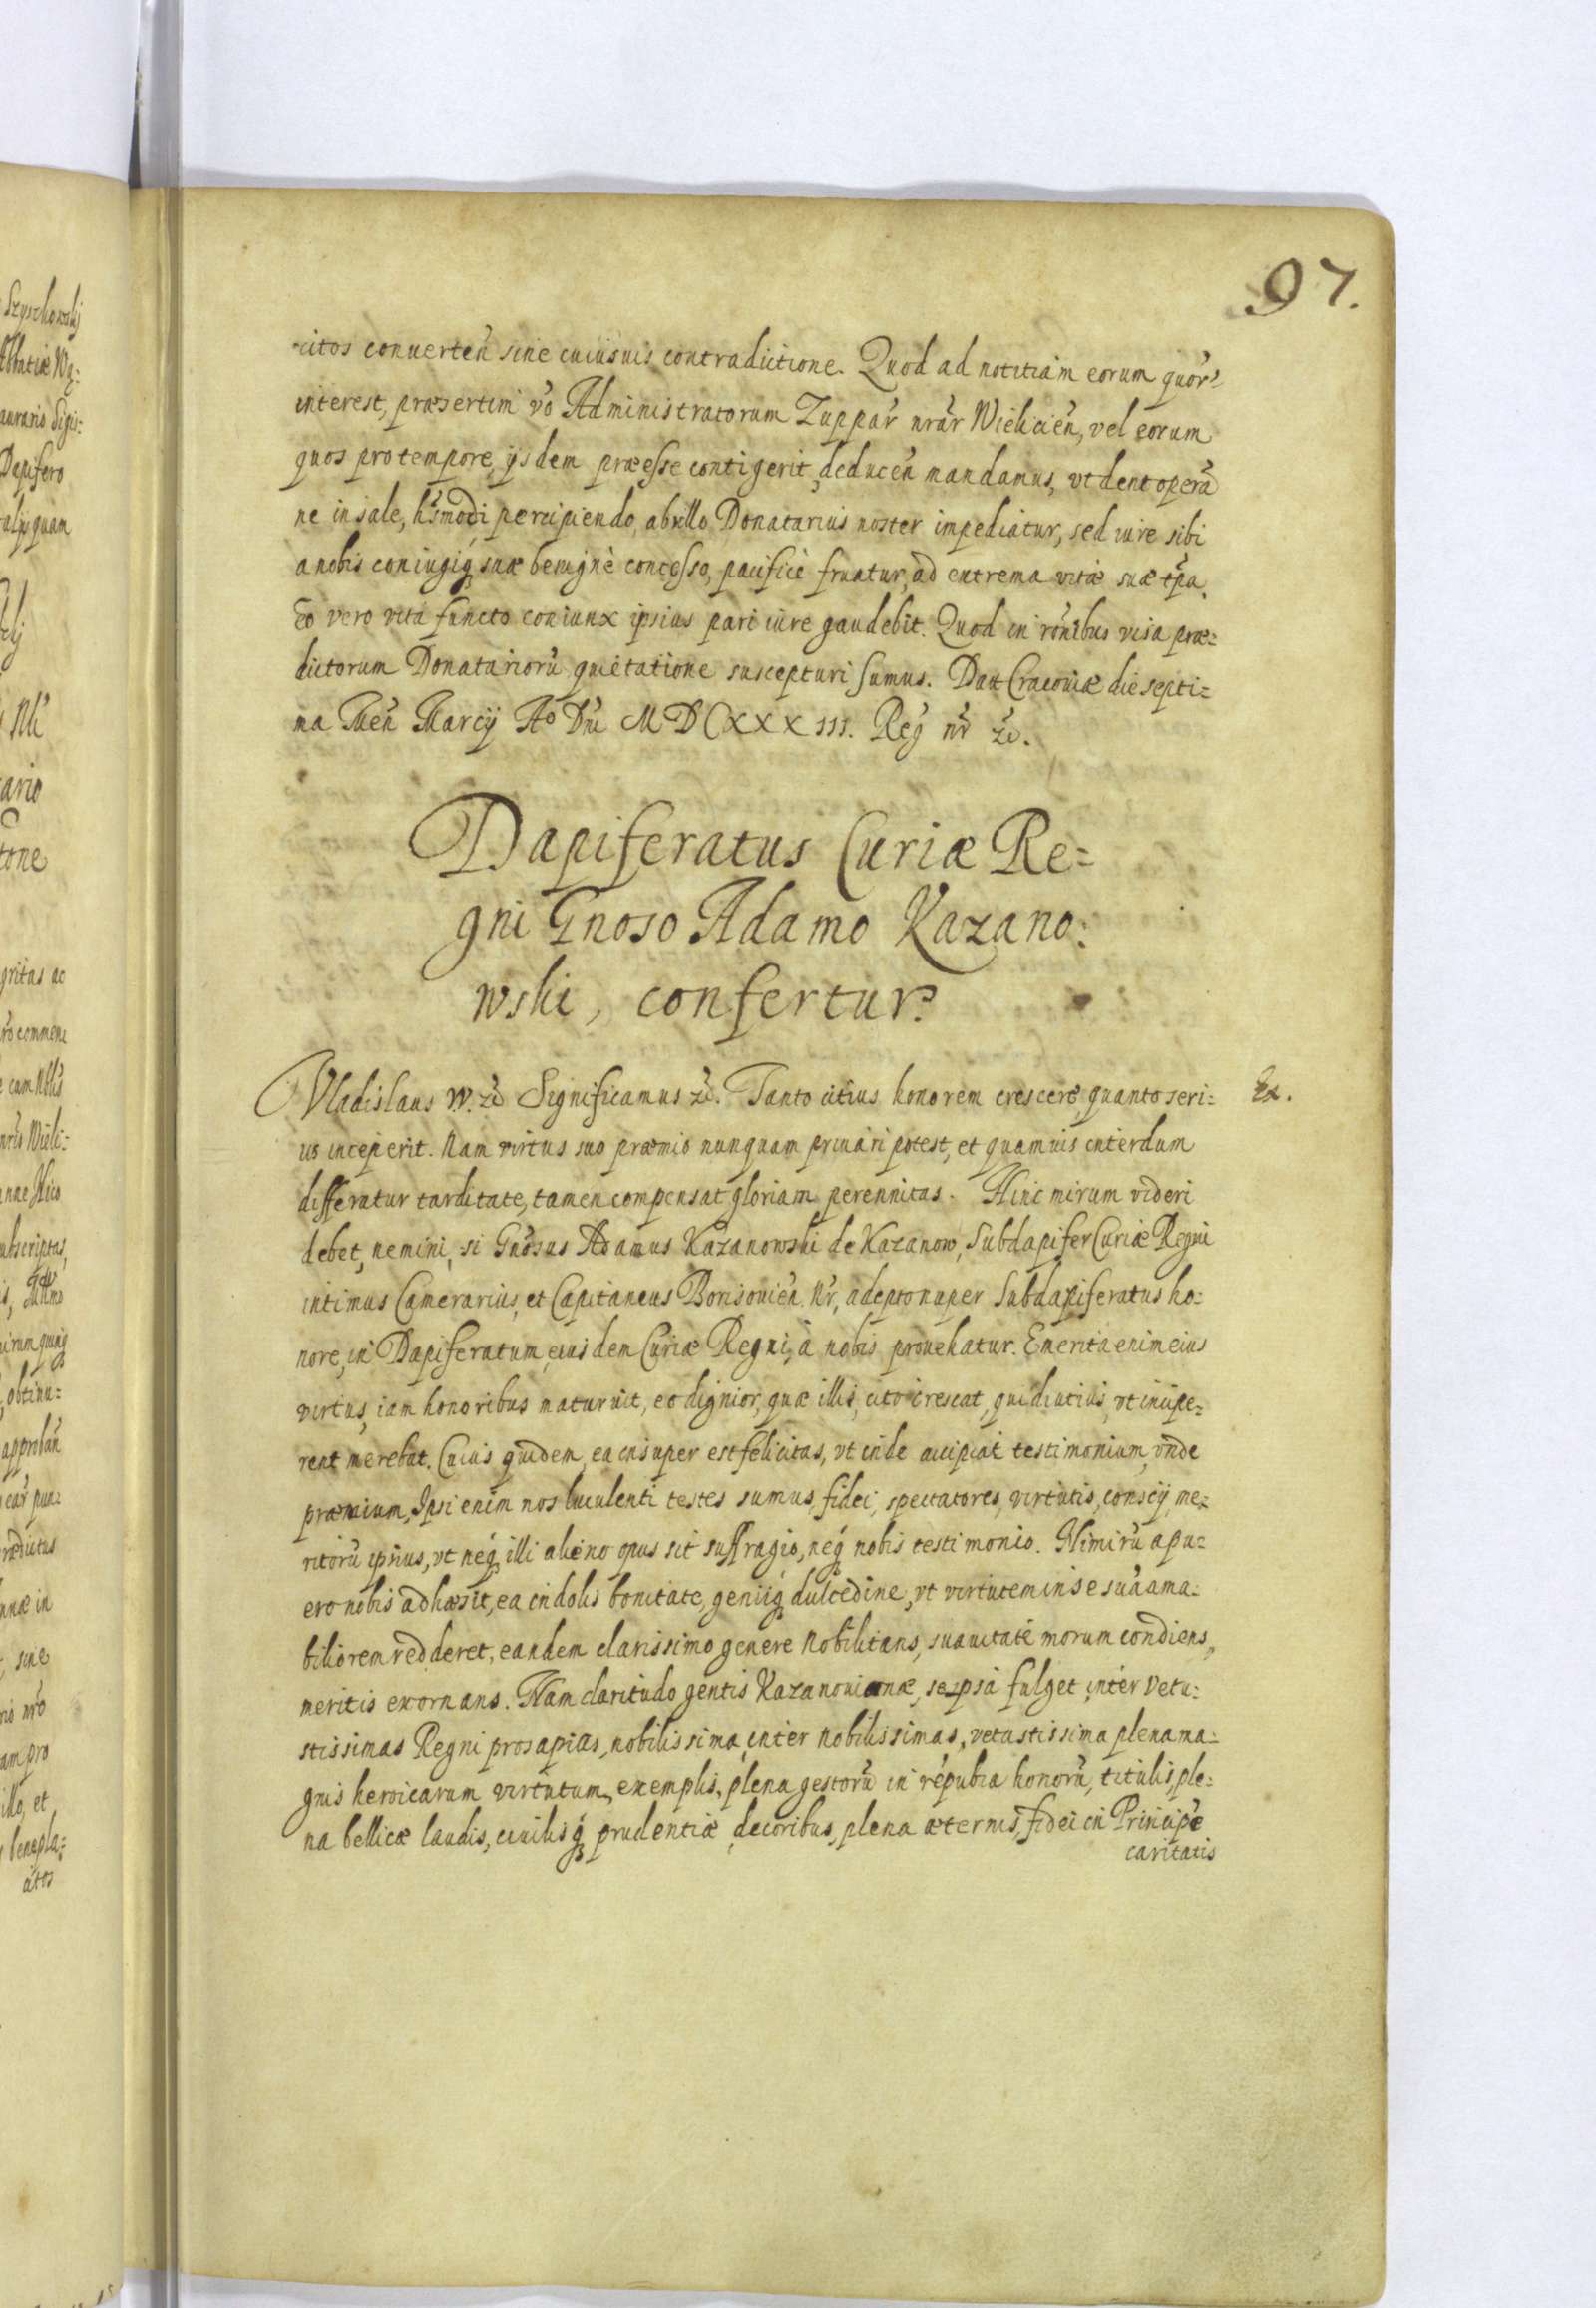 97.
citos conuerten̄ sine cuiusuis contradictione. Quod ad notitiam eorum quor̄
interest, præsertim v̄o Administratorum Zuppar̄ nr̄ar̄ Wielicien̄, vel eorum
quos pro tempore, ijsdem præesse contigerit, deducen̄ mandamus, vt dent operā
ne in sale, hs̄modi percipiendo, ab ullo Donatarius noster impediatur, sed iure sibi
a nobis coniugiq́ suæ benignè concesso, pacificè fruatur, ad extrema vitæ suæ tp̄a.
Eo vero vita functo coniunx ipsius pari iure gaudebit. Quod in rōnibus visa præ=
dictorum Donatariorū quietatione suscepturi sumus. Dat Cracouiæ die septi=
ma Men̄ Marcij Aº Dn̄i MDCXXXIII. Reg̃ nr̄ zc̄.
Dapiferatus Curiæ Re=
gni Gnoso Adamo Kazano:
wski, confertur.
Vladislaus IV. zc̄ Significamus zc̄. Tanto citius honorem crescere, quanto seri=
us inceperit. Nam virtus suo præmio nunquam priuari potest, et quamuis interdum
differatur tarditate, tamen compensat gloriam perennitas. Hinc mirum videri
debet, nemini, si Gn̄osus Adamus Kazanowski de Kazanow, Subdapifer Curiæ Regni
intimus Camerarius, et Capitaneus Borisouien̄. Nr̄, adepto nuper Subdapiferatus ho=
nore, in Dapiferatum, eiusdem Curiæ Regni, à nobis prouehatur. Emerita enim eius
virtus, iam honoribus maturuit, eo dignior, quæ illis, cito crescat, qui diutius, vt incipe=
rent merebat. Cuius quidem, ea insuper est felicitas, vt inde accipiat testimonium, vnde
præmium, Ipsi enim nos luculenti testes sumus, fidei, spectatores, virtutis, conscij, me=
ritorū ipsius, vt neq́ illi alieno opus sit suffragio, neq́ nobis testimonio. Nimirū a pu=
ero nobis adhæsit, ea indolis bonitate, geniiq́ dulcedine, vt virtutem in se suā ama=
biliorem redderet, eandem clarissimo genere nobilitans, suauitate morum condiens,
meritis exornans. Nam claritudo gentis Kazanouianæ, seipsa fulget inter vetu=
stissimas Regni prosapias, nobilissima inter nobilissimas, vetustissima plena ma=
gnis heroicarum virtutum, exemplis, plena gestorū in rēpublica honorū, titulis, ple=
na bellicæ laudis, ciuilisq́ prudentiæ, decoribus, plena æternis, fidei in Principe
caritatis
Ex.